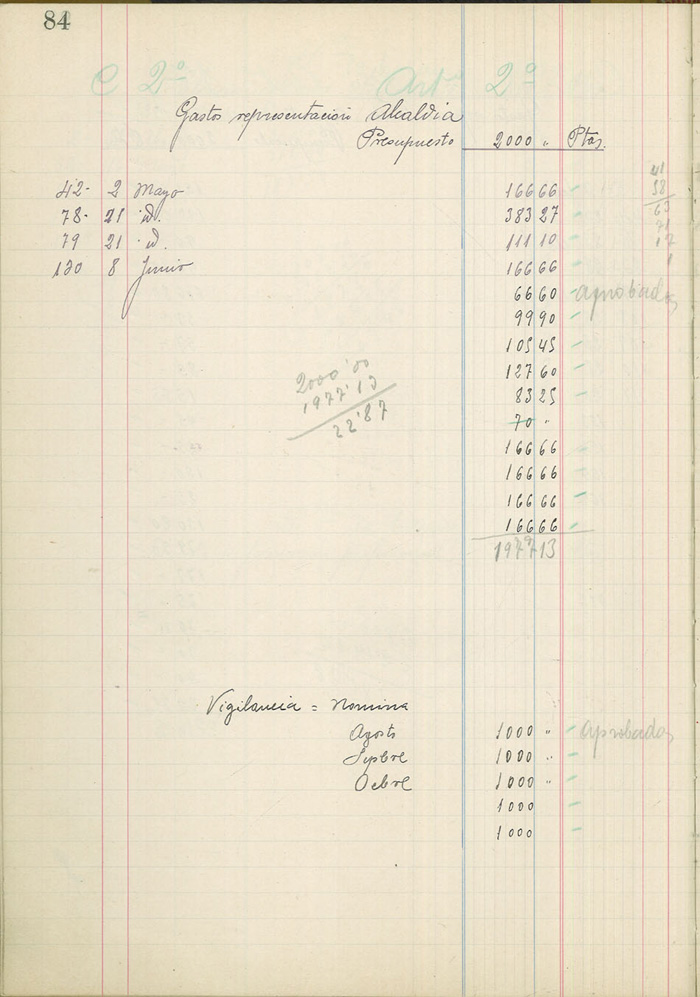 84
C 2º Artº 2º
Gastos representacion Alcaldia
Presupuesto 2000 " Ptas.
42- 2 Mayo 166 66
78- 21 id. 383 27
79 21 id. 111 10
130 8 Junio 166 66
66 60 aprobadas
99 90
105 45
127 60
83 25
70 "
166 66
166 66
166 66
166 66
1977 13
2000'00
1977'13
22'87
41
58
63
71
17
1
Vigilancia = Nomina
Agosto 1000 " aprobadas
Sepbre 1000 "
Ocbre 1000 "
1000
1000